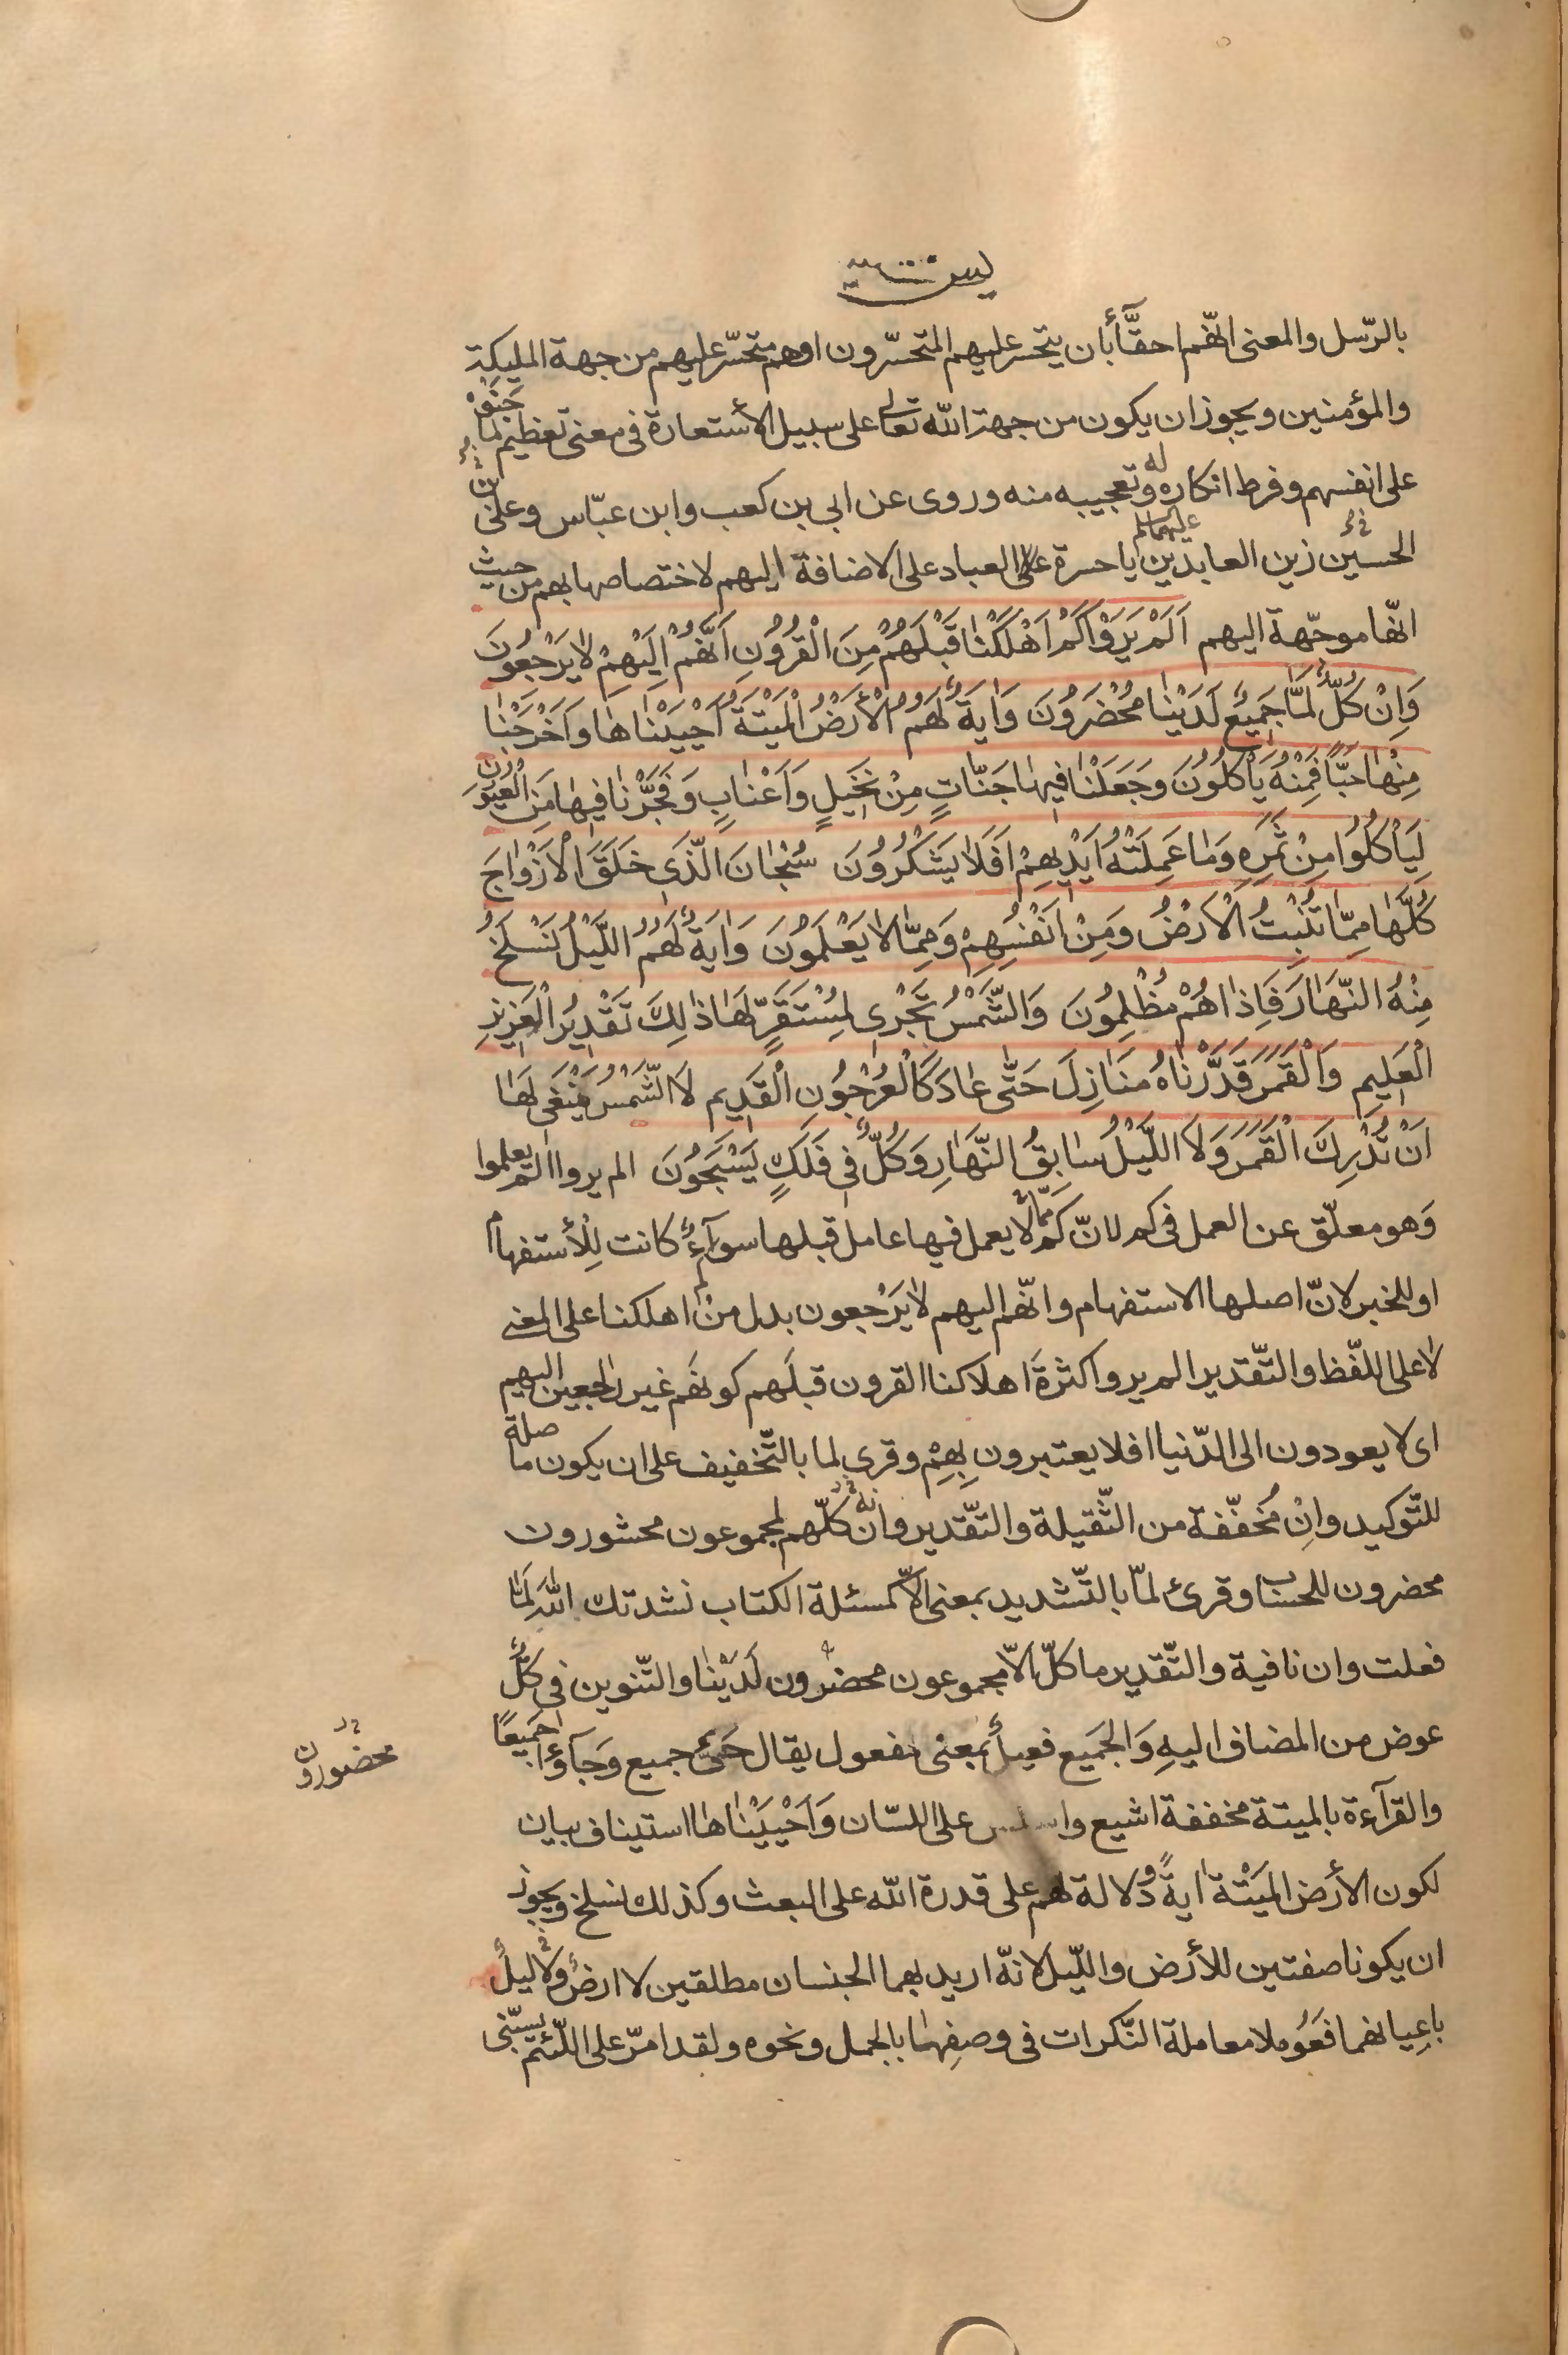 يس
بالرّسل والمعنى انّهم احقّاء بأن يتحسّر عليهم المتحسّرون اوهم متحسّر عليهم من جهة المليكة
والمؤمنين ويجوز ان يكون من جهة الله تعالى على سبيل الأستعارة فى معنى تعظيم ما جنوْه
على انفسهم وفرط انكاره له وتعجيبه منه وروى عن ابي بن كعب وابن عبّاس وعلىّ بن
الحسين زين العابدين عليهما السلم يا حسرة العباد على الاضافة اليهم لاختصاصها بهم من حيث
انّها موجّهة اليهم اَلَمْ يَرَوْا كَمْ اَهْلَكْنٰا قَبْلَهُمْ مِنَ الْقُرُونِ اَنَّهُمْ اِلَيْهِمْ لٰا يَرْجِعُونَ
وَاِنْ كُلٌّ لَمّٰا جَمِيعٌ لَدَيْنٰا مُحْضَرُونَ وَاٰيَةٌ لَهُمُ الْأَرْضُ الْمَيْتَةُ اَحْيَيْنٰاهٰا وَاَخْرَجْنٰا
مِنْهٰا حَبًّا فَمِنْهُ يَأْكُلُونَ وَجَعَلْنٰا فِيهٰا جَنّٰاتٍ مِنْ نَخِيلٍ وَاَعْنٰابٍ وَفَجَّرْنٰا فِيهٰا مِنَ الْعُيُونِ
لِيَأْكُلُوا مِنْ ثَمَرِهِ وَمٰا عَمِلَتْهُ اَيْدِيهِمْ اَفَلٰا يَشْكُرُونَ سُبْحٰانَ الَّذِى خَلَقَ الْاَزْوٰاجَ
كُلَّهٰا مِمّٰا تُنْبِتُ الْاَرْضُ وَمِنْ اَنْفُسِهِمْ وَمِمّٰا لٰا يَعْلَمُونَ وَاٰيَةٌ لَهُمُ اللَّيْلُ نَسْلَخُ
مِنْهُ النَّهٰارَ فَاِذٰا هُمْ مُظْلِمُونَ وَالشَّمْسُ تَجْرِى لِمُسْتَقَرٍّ لَهٰا ذٰلِكَ تَقْدِيرُ الْعَزِيزِ
الْعَلِيمِ وَالْقَمَرَ قَدَّرْنٰاهُ مَنٰازِلَ حَتّٰى عٰادَ كَالْعُرْجُونِ الْقَدِيمِ لَا الشَّمْسُ يَنْبَغِى لَهٰا
اَنْ تُدْرِكَ الْقَمَرَ وَلَا اللَّيْلُ سٰابِقُ النَّهٰارِ وَكُلٌّ فِى فَلَكٍ يَسْبَحُونَ الم يروا الم يعلموا
وَهو معلّق عن العمل فى كم لانّ كم لا يعمل فيها عامل قبلها سوآءٌ كانت لِلأستفهام
او للخبر لانّ اصلها الاستفهام وانّهم اليهم لٰا يَرْجعون بدل من كم اهلكنا على المعنى
لٰا على اللفّظ والتّقدير الم يروا كثرةَ اهلاكنا القرون قبلَهم كونهَم غير راجعين اليهم
اى لا يعودون الى الدّنيا افلا يعتبرون بِهِمْ وقرى لما بالتّخفيف على ان يكون ما صلة
للتّوكيد وانِْ مُخفّفة من الثّقيلة والتّقدير وانه كلّهم لمجموعون محشورون
محضرون للحساب وقرئ لمّا بالتّشديد بمعنى الّا كمسئلة الكتاب نشدتك اللهَ لَمّٰا
فعلت وان نافية والتّقدير ما كلّ الاّ مجموعون محضرون لَدَيْنٰا والتّنوين فى كلٌّ
عوض من المضاف اليهِ وَالجَميع فعيلٌ بمعنى مفعول يقال حَىٌّ جميع وَجَآؤا جَميعًا
محضورون
والقرآءة بالميتة مخففة اشيع واسلس على اللسّان وَاَحْيَيْنٰاهٰا استيناف ببيان
لكون الأرض المَيْتة اٰيةً ودلالة لهم على قدرة الله على البعث وكذلك نسلخ ويجوز
ان يكونا صفتين للأرض واللّيل لانّه اريد بهما الجنسان مطلقين لا ارضٌ ولا ليلٌ
باعِيانهما فعَوُملا معاملة النّكرات فى وصفِهمٰا بالجمل ونحوه ولقد امرّ على اللّئيم يسبّنى